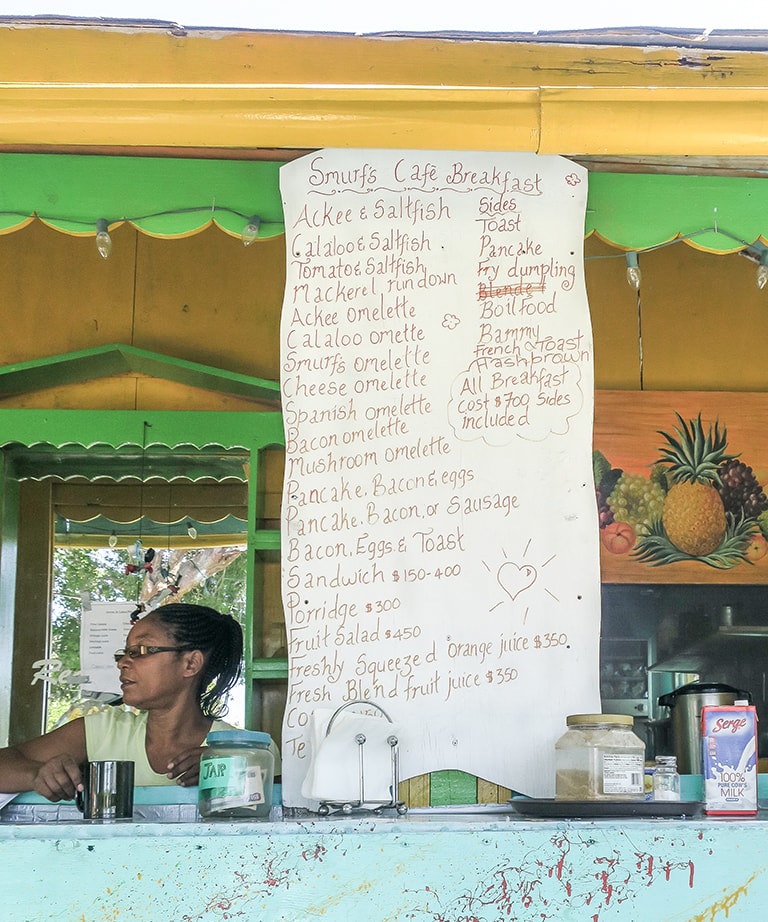 Smurf's Café Breakfast
Ackee & Saltfish
Calaloo & Saltfish
Tomato & Saltfish
Mackerel run down
Ackee omelette
Calaloo omette
Smurfs omelette
Cheese omelette
Spanish omelette
Bacon omelette
Mushroom omelette
Pancake, Bacon & eggs
Pancake, Bacon, or Sausage
Bacon, Eggs & Toast
Sandwich $150-400
Porridge $300
Fruit Salad $450
Freshly Squeezed Orange juice $350
Fresh Blend fruit juice $350
Co
Te
Sides
Toast
Pancake
Fry dumpling
Blended
Boil Food
Bammy
French Toast
Hashbrown
All Breakfast
cost $700 Sides
included
Serge
100%
PURE COW'S
MILK